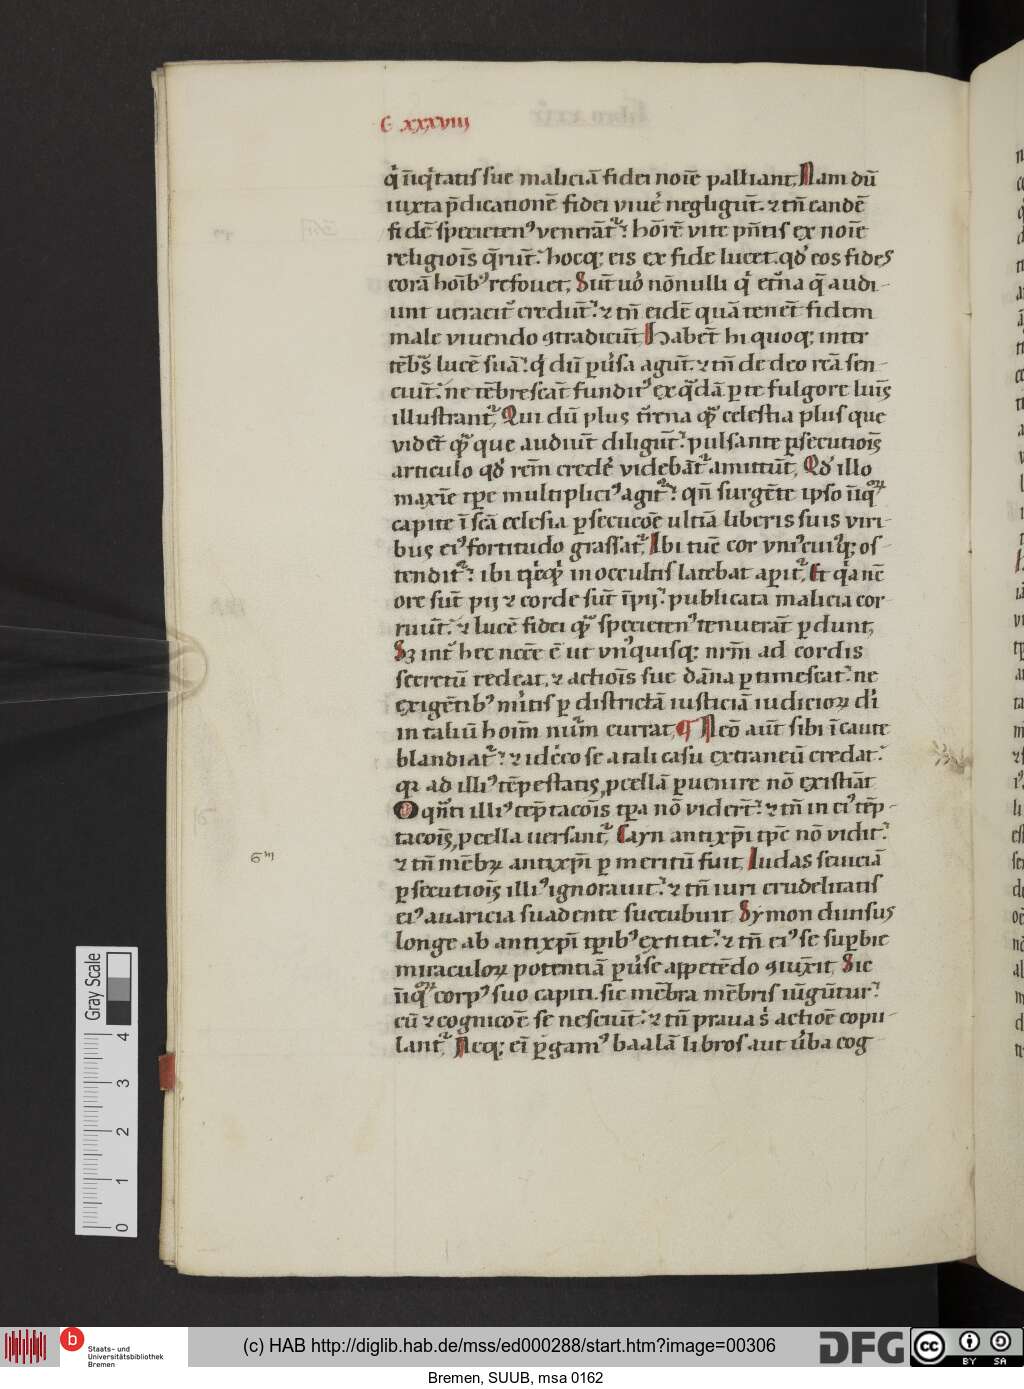 C xxxviij
q̇ īiq̇tatis sue maliciā fidei noīe palliant, Nam dū
iuxta p̄dicationē fidei viuē negligūt. ⁊ tn̄ eandē
fidē specieten⁹ venerāt᷑: honorē vite pn̄tis ex noīe
religiois̄ q̄rūt: hocq; eis ex fide lucet. qd̛ eos fides
corā hoīb⁹ refouet, Sūt uo̓ nōnulli q̇ et̓na q̄ audi-
unt ueracit̓ credūt: ⁊ tn̄ eidē quā tenēt fidem
male viuendo ꝯtradicūt, Habēt hi quoq; inter
tēb̓s lucē suā: q̇ dū pu̓sa agūt. ⁊ tn̄ de deo rcā sen-
ciūt: ne tēbrescāt fundit⁹ ex q̄dā ꝑte fulgore luīs
illustrant᷑, Qui dū plus t̓rena qꝫ celestia plus que
vidēt qꝫ que audiūt diligūt: pulsante ꝑsecutiois̄
articulo qd̛ rem̄ crede̓ videbāt᷑ amittūt, Qd̛ illo
maxīe tꝑe multiplici⁹ agit᷑: qn̄ surgēte ipso īiqꝫ
capite ī scā ecclesia ꝑsecucōe ultīa liberis suis viri-
bus ei⁹ fortitudo grassat᷑, Ibi tūc cor vni⁹cuiq; os-
tendit᷑: ibi q̇cq̇ in occultis latebat aꝑit᷑, Et q̇a nc̄
ore sūt pij ⁊ corde sūt īpij: publicata malicia cor-
ruūt: ⁊ lucē fidei qꝫ specieten⁹ tenuerāt ꝑdunt,
Sꝫ int̓ hec ncc̄e ē ut vn⁹quisq; nrm̄ ad cordis
secretū redeat, ⁊ actiois̄ sue dāna ꝑtimescat: ne
exigētib⁹ mi̓tis ꝑ districtā iusticiā iudicioꝝ dī
in taliū hoīm nūm currat, ¶ Neō aūt sibi īcaute
blandiat᷑: ⁊ idc̓co se a tali casu extraneū credat:
qꝛ ad illi⁹ tēpestatis ꝓcellā ꝑuenire nō existīat
O qn̄ti illi⁹ tēptacois̄ tꝑa nō viderēt: ⁊ tn̄ in ei⁹ tēp-
tacois̄ ꝓcella uersant᷑, Cayn antixp̄i tꝑe nō vidit:
⁊ tn̄ mēbꝝ antixp̄i ꝑ meritū fuit, Iudas seuiciā
ꝑsecutiois̄ illi⁹ ignorauit: ⁊ tn̄ iuri crudelitatis
ei⁹ auaricia suadente succubuit, Symon diuisus
longe ab antixp̄i tꝑib⁹ extitit: ⁊ tn̄ ei⁹ se suꝑbie
miraculoꝝ potentiā pu̓se appetēdo ꝯiūxit, Sic
īiqꝫ corp⁹ suo capiti. sic mēbra mēbris iūgūtur:
cū ⁊ cognicōe se nesciūt: ⁊ tn̄ praua s̓ actiōe copu-
lant᷑, Necq; eī ꝑgam⁹ baalā libros aut u̓ba cog
Gray Scale
4
3
2
1
0
b
Staats- und
Universitätsbibliothek
Bremen
(c) HAB http://diglib.hab.de/mss/ed000288/start.htm?image=00306
DFG
cc
BY SA
Bremen, SUUB, msa 0162